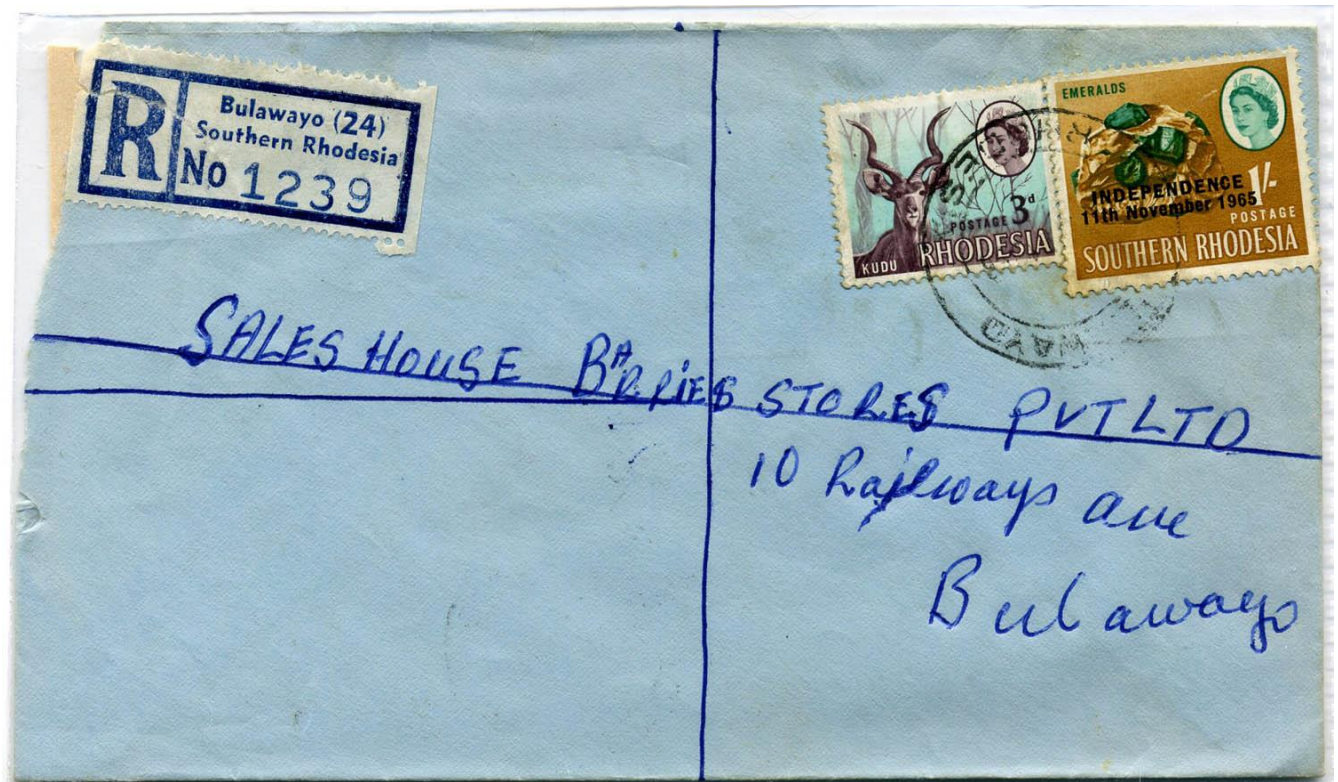 R
Bulawayo (24)
Southern Rhodesia
No 1239
KUDU
POSTAGE 3d
RHODESIA
EMERALDS
INDEPENDENCE
11th November 1965
1/-
POSTAGE
SOUTHERN RHODESIA
WAYO
SALES HOUSE BARRIES STORES PVT LTD
10 Railways ave
Bulawayo